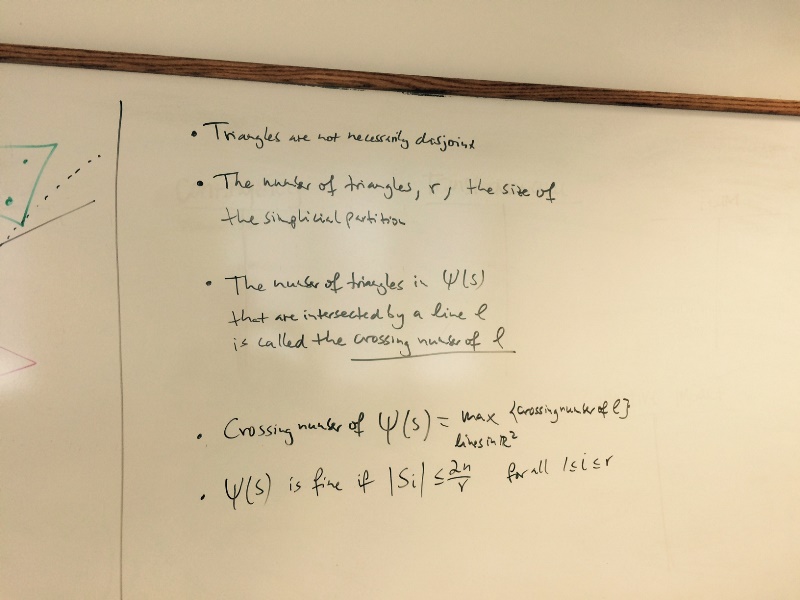 • Triangles are not necessarily disjoint
• The number of triangles, r, the size of
the simplicial partition
• The number of triangles in Ψ(S)
that are intersected by a line ℓ
is called the crossing number of ℓ
• Crossing number of Ψ(S) = max {crossing number of ℓ}
lines in ℝ²
• Ψ(S) is fine if |Si| ≤ 2n/r for all 1≤i≤r